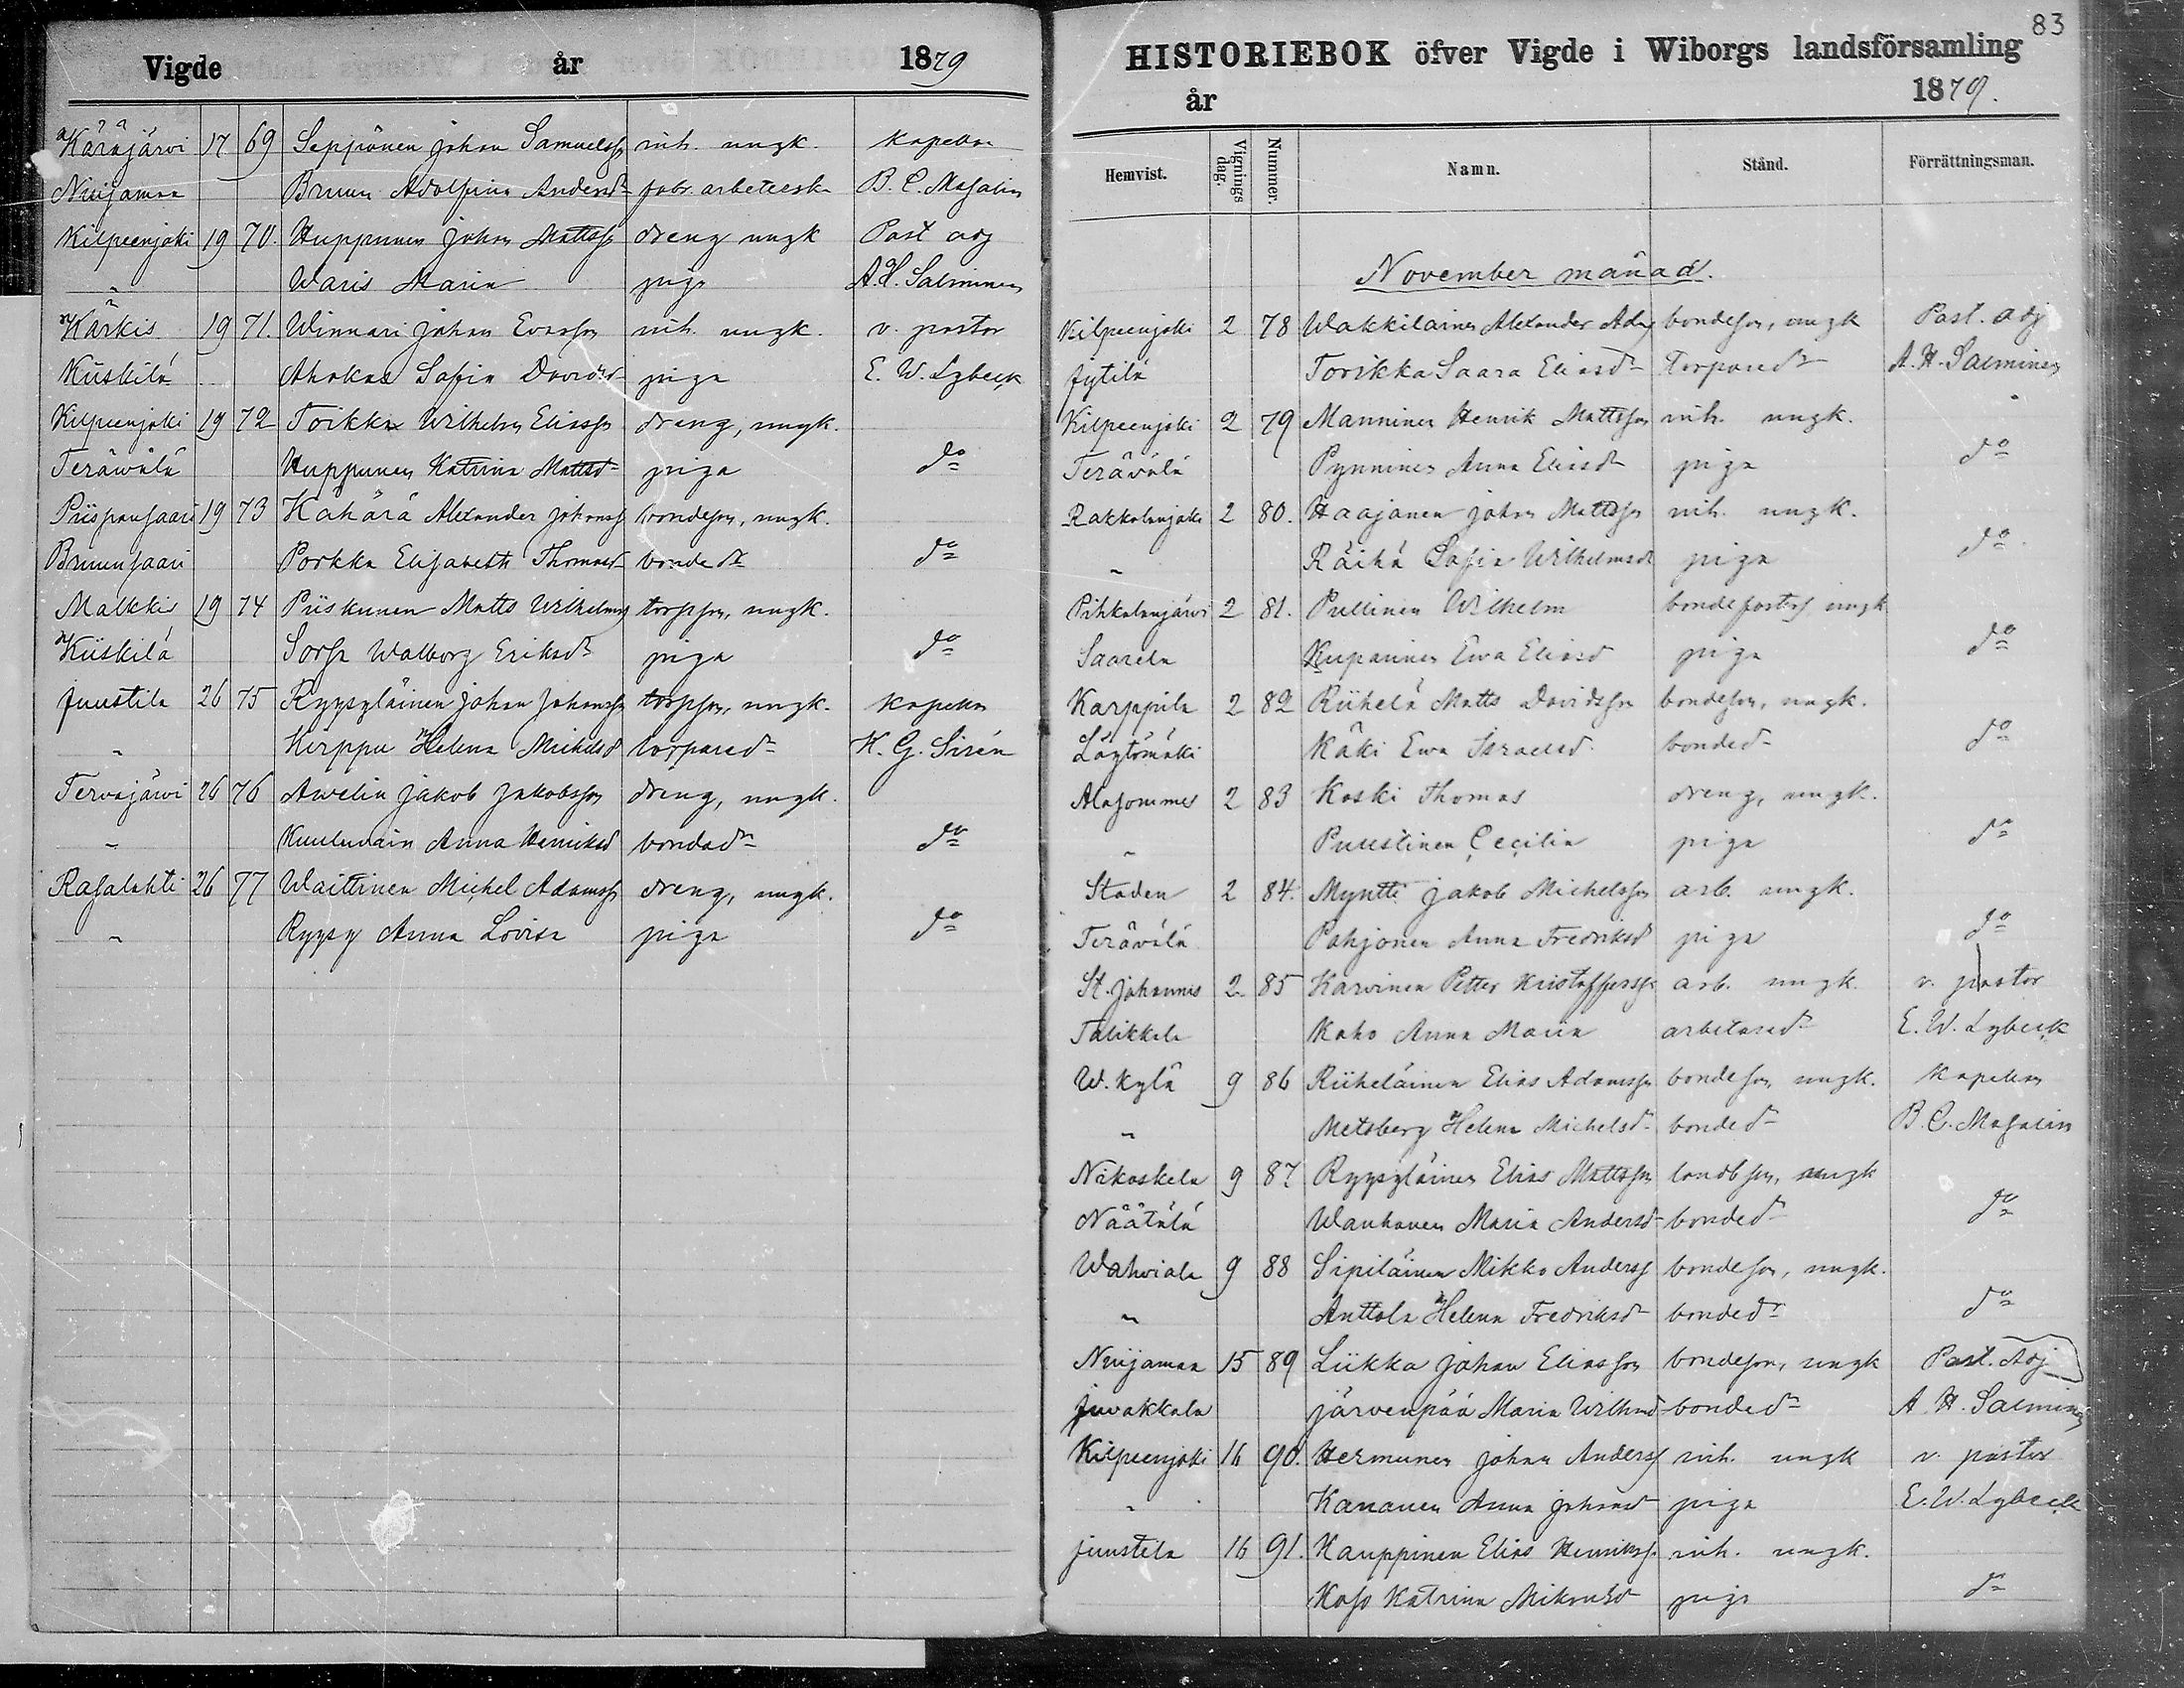 Vigde år 1879
Käräjärvi 17 69 Seppönen Johan Samuelss inh. ungk. kapellan
Nuijamaa Bruun Adolfina Andersdr fabr. arbetersk B. C. Masalin
Kilpeenjoki 19 70. Huppunen Johan Mattss dreng ungk Past adj
" Waris Maria piga A. H. Salminen
Kärkis 19 71. Winnari Johan Evasson inh. ungk. v. pastor
Kiiskilä Ahokas Sofia Davidsd piga E. W. Lybeck
Kilpeenjoki 19 72 Toikka Wilhelm Eliasson dreng, ungk.
Teräwälä Huppunen Katrina Mattsd piga do
Piispansaari 19 73 Kähärä Alexander Johanss bondeson, ungk.
Bruunsaari Porkka Elisabeth Thomasd bondedr do
Malkkis 19 74 Piiskunen Matts Wilhelms torpson, ungk.
Kiiskilä Sorsa Walborg Eriksdr piga do
Juustila 26 75 Rypsyläinen Johan Johanss torpson, ungk. kapellan
" Kirppu Helena Michelsd torparedr K. G. Sirén
Tervajärvi 26 76 Awelin Jakob Jakobsson dreng, ungk.
" Anna Henriksd bondedr do
Rasalahti 26 77 Waittinen Michel Adamss dreng, ungk.
" Rypsy Anna Lovisa piga do
83
HISTORIEBOK öfver Vigde i Wiborgs landsförsamling
år 1879.
Hemvist. Vignings dag. Nummer. Namn. Stånd. Förrättningsman.
November månad.
Kilpeenjoki 2 78 Wakkilainen Alexander Ad bondeson, ungk Past. adj
Jytilä Torikka Saara Eliasdr Torparedr A. H. Salminen
Kilpeenjoki 2 79 Manninen Henrik Mattsson inh. ungk.
Terävälä Pynninen Anna Eliasdr piga do
Rakkolanjoki 2 80. Haajanen Johan Mattsson inh. ungk.
" Räihä Sofia Wilhelmsdr piga do
Pihkalanjärvi 2 81. Pullinen Wilhelm bondefosters ungk
Saarela Kuparinen Ewa Eliasd piga do
Karppila 2 82 Riihelä Matts Davidsson bondeson, ungk.
Löytömäki Käki Ewa Israelsd. bonded do
Alasommes 2 83 Koski Thomas dreng, ungk.
" Puustinen Cecilia piga do
Staden 2 84. Myntti Jakob Michelsson arb. ungk.
Terävälä Pohjonen Anna Fredriksd piga do
St. Johannis 2 85 Karvinen Petter Kristofferss arb. ungk. v. pastor
Talikkala Kaho Anna Maria arbetaredr E. W. Lybeck
W. kylä 9 86 Riiheläinen Elias Adamsson bondeson, ungk. kapellan
" Metsberg Helena Michelsd bonded B. C. Masalin
Näkoskela 9 87 Rypsyläinen Elias Mattsson landbson, ungk
Näätälä Wanhanen Maria Andersd bonded do
Wahviala 9 88 Sipiläinen Mikko Anderss bondeson, ungk.
" Anttola Helena Fredriksd bondedr do
Nuijamaa 15 89 Liikka Johan Eliasson bondeson, ungk Past. Adj
Juvakkala Järvenpää Maria Wilhmd bondedr A. H. Salminen
Kilpeenjoki 16 90. Hermunen Johan Anderss inh. ungk v. pastor
" Kananen Anna Johansd piga E. W. Lybeck
Juustila 16 91. Kauppinen Elias Henrikss inh. ungk.
Koso Katrina piga do